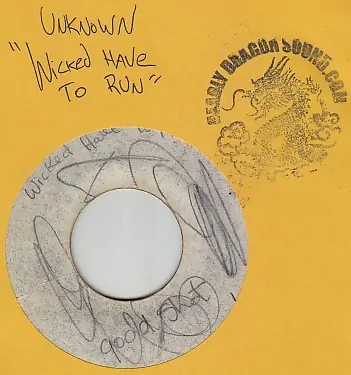 UNKNOWN
"WICKED HAVE
TO RUN"
DEADLY DRAGON SOUND.COM
Wicked Have
good shot